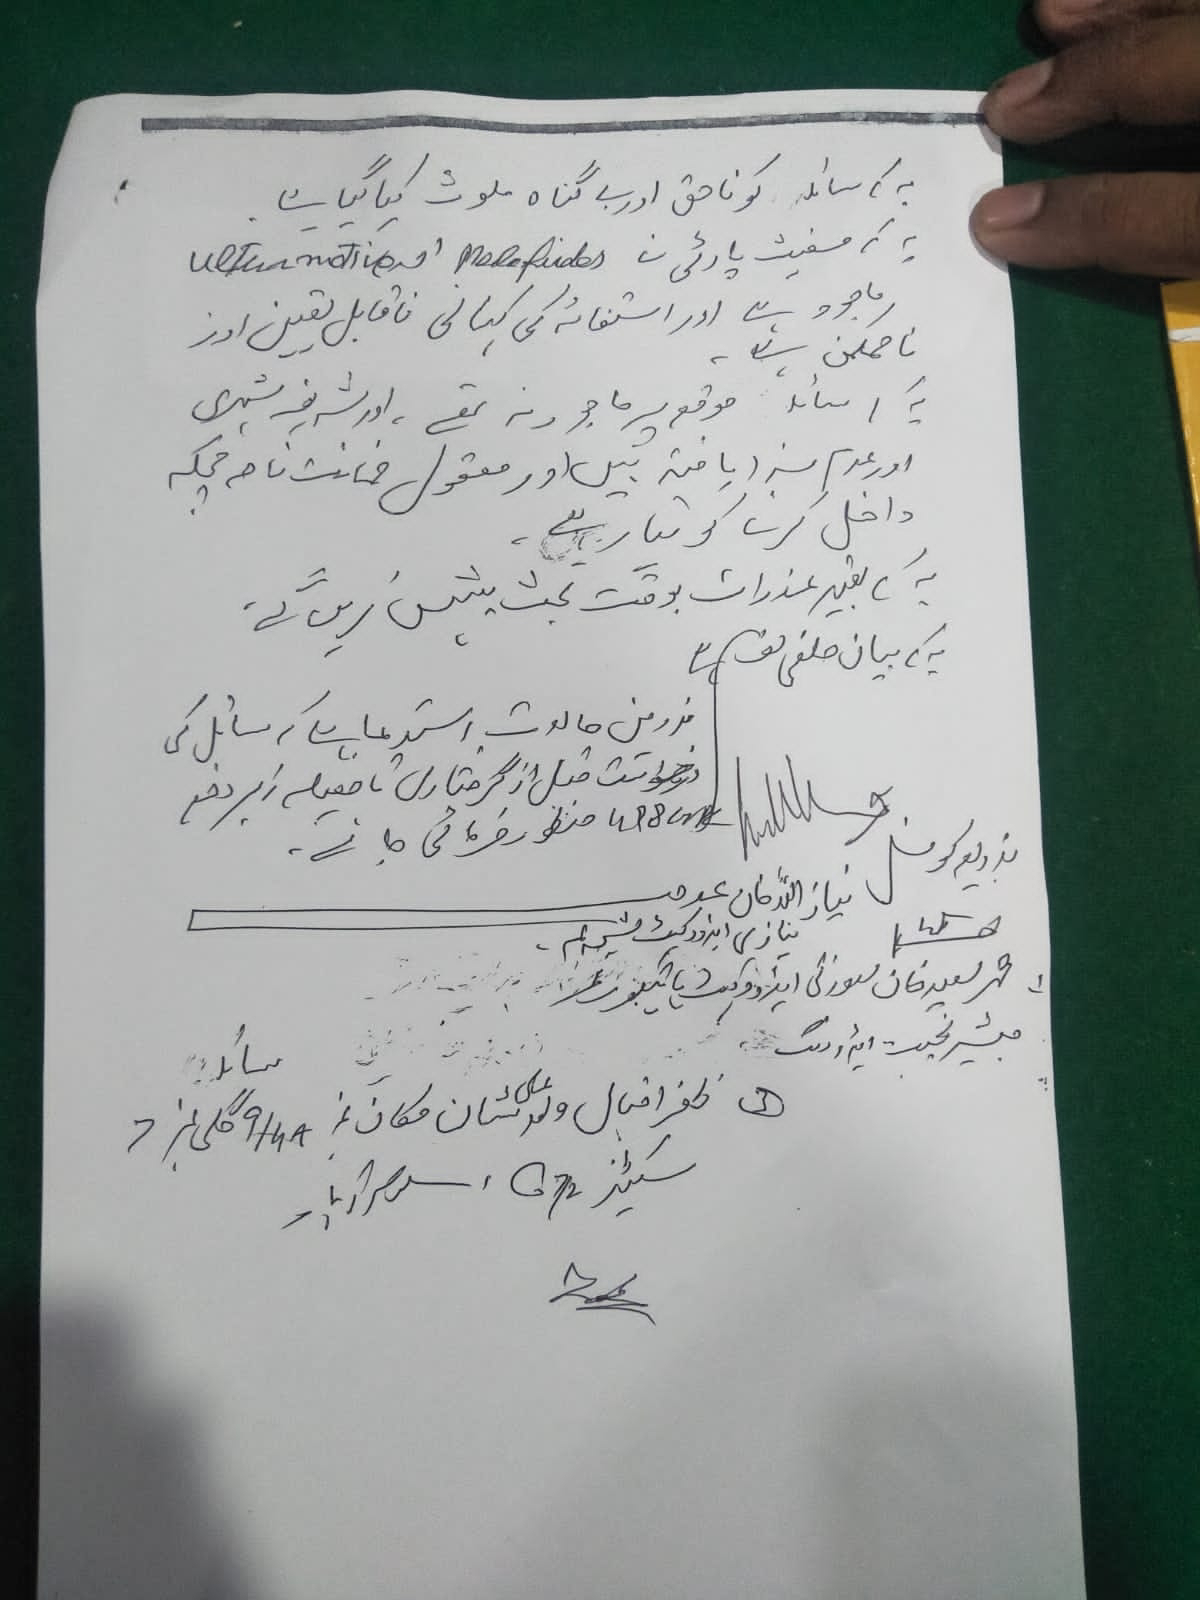 یہ کہ سائلہ کو ناحق اور بے گناہ ملوث کیا گیا ہے۔
یہ کہ مغیث پارٹی نے Malafides اور ulterior motive
موجود ہے اور استغاثہ کی کہانی ناقابل یقین اور
ناممکن ہے۔
یہ کہ سائلہ موقع پر موجود نہ تھے، اور شریف شہری
اور عدم سزا یافتہ ہیں اور معقول ضمانت نامہ مچلکہ
داخل کرنے کو تیار ہے۔
یہ کہ بقیہ عذرات بوقت بحث پیش کریں گے۔
یہ کہ بیان حلفی لف ہے
اندریں حالات استدعا ہے کہ سائل کی
درخواست قبل از گرفتاری تا فیصلہ زیر دفع
498 منظور فرمائی جائے۔
بذریعہ کونسل
نیاز اللہ خان
نیازی ایڈووکیٹ
سعید خان ایڈووکیٹ ہائیکورٹ
مبشر
سائلہ
① ظفر اقبال ولد علی شان مکان نمبر 9/4A گلی نمبر 7
سیکٹر G 7/2، اسلام آباد